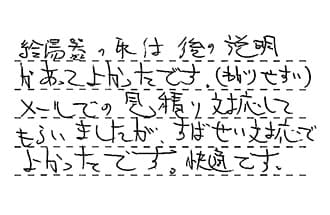 給湯器の取付後の説明
があってよかったです。(わかりやすい)
メールでの見積り対応して
もらいましたが、すばやい対応で
よかったです。快適です。